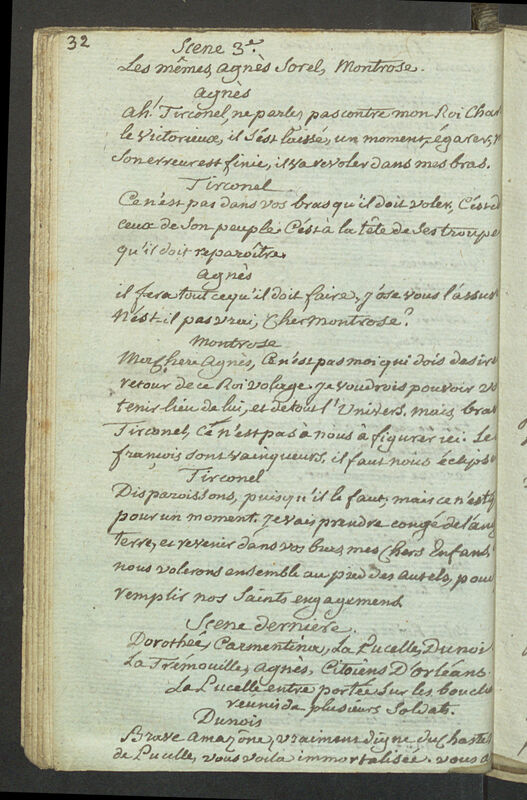 32
Scene 3e.
Les mêmes, agnès Sorel, Montrose.
agnès
ah! Tirconel, ne parlez pas contre mon Roi Char
le Victorieux, il s'est laissé, un moment, égarer,
Son erreur est finie, il va revoler dans mes bras.
Tirconel
Ce n'est pas dans vos bras qu'il doit voler, C'est d
ceux de Son peuple. C'est à la tête de Ses troupe
qu'il doit reparoître.
agnès
il fera tout ce qu'il doit faire, j'ose vous l'assur
N'est-il pas vrai, Cher Montrose?
Montrose
Ma Chere Agnès, Ce n'est pas moi qui dois desirer
retour de ce Roi volage. Je voudrois pouvoir vo
tenir lieu de lui, et de tout l'Univers, mais, brav
Tirconel, Ce n'est pas à nous à figurer ici. Le
françois sont vainqueurs, il faut nous éclips
Tirconel
Disparoissons, puisqu'il le faut, mais ce n'est
pour un moment. Je vais prendre congé de l'ang
terre, et revenir dans vos bras, mes Chers Enfans,
nous volerons ensemble au pied des autels, pour
remplir nos Saints engagemens.
Scene derniere.
Dorothée, Carmentina, La Pucelle, Dunois
La Trémouille, agnès, Citoiens D'orléans.
La Pucelle entre portée Sur les boucli
réunis de plusieurs Soldats.
Dunois
Brave amazône, vraiment digne du Chaste
de Pucelle, vous voila immortalisée. vous a